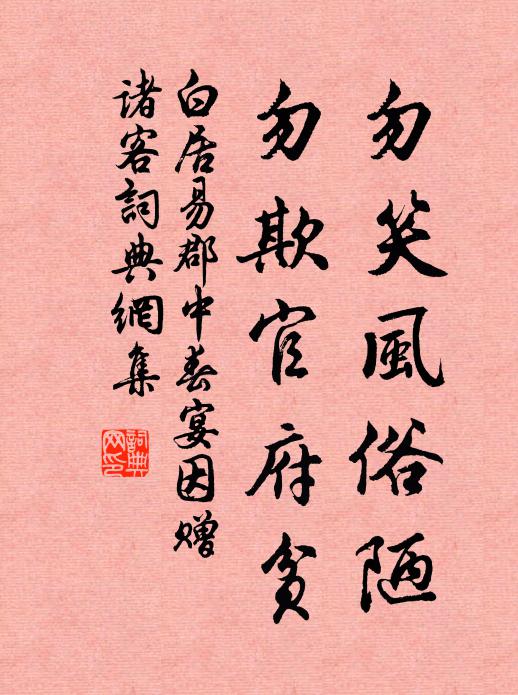 勿笑風俗陋
勿欺官府貧
白居易郡中春宴因贈
諸客詞典網集
詞典網印